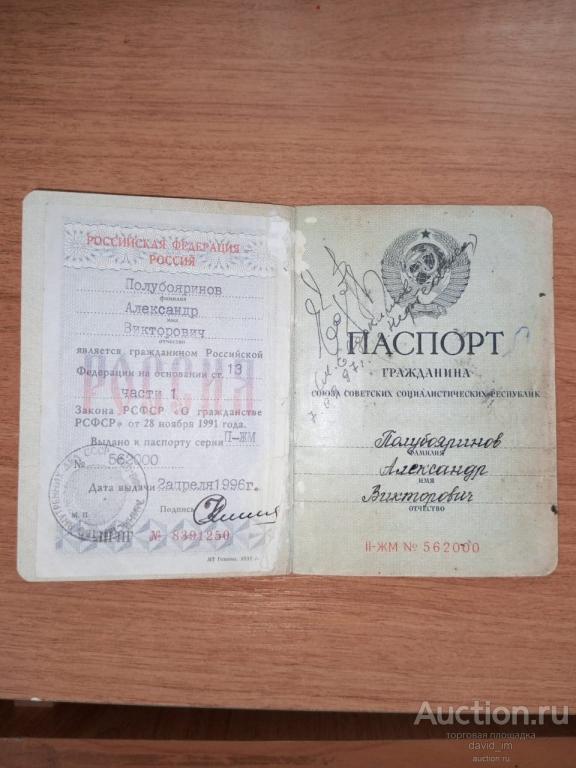 РОССИЙСКАЯ ФЕДЕРАЦИЯ
РОССИЯ
Полубояринов
фамилия
Александр
имя
Викторович
отчество
является гражданином Российской
Федерации на основании ст. 13
части 1
Закона РСФСР «О гражданстве
РСФСР» от 28 ноября 1991 года.
Выдано к паспорту серии II-ЖМ
№ 562000
Дата выдачи 2апреля1996г.
Подпись
М. П.
№ 8391250
РОССИЯ
ПАСПОРТ
ГРАЖДАНИНА
СОЮЗА СОВЕТСКИХ СОЦИАЛИСТИЧЕСКИХ РЕСПУБЛИК
Полубояринов
ФАМИЛИЯ
Александр
ИМЯ
Викторович
ОТЧЕСТВО
II-ЖМ № 562000
Auction.ru
торговая площадка
david_im
auction.ru